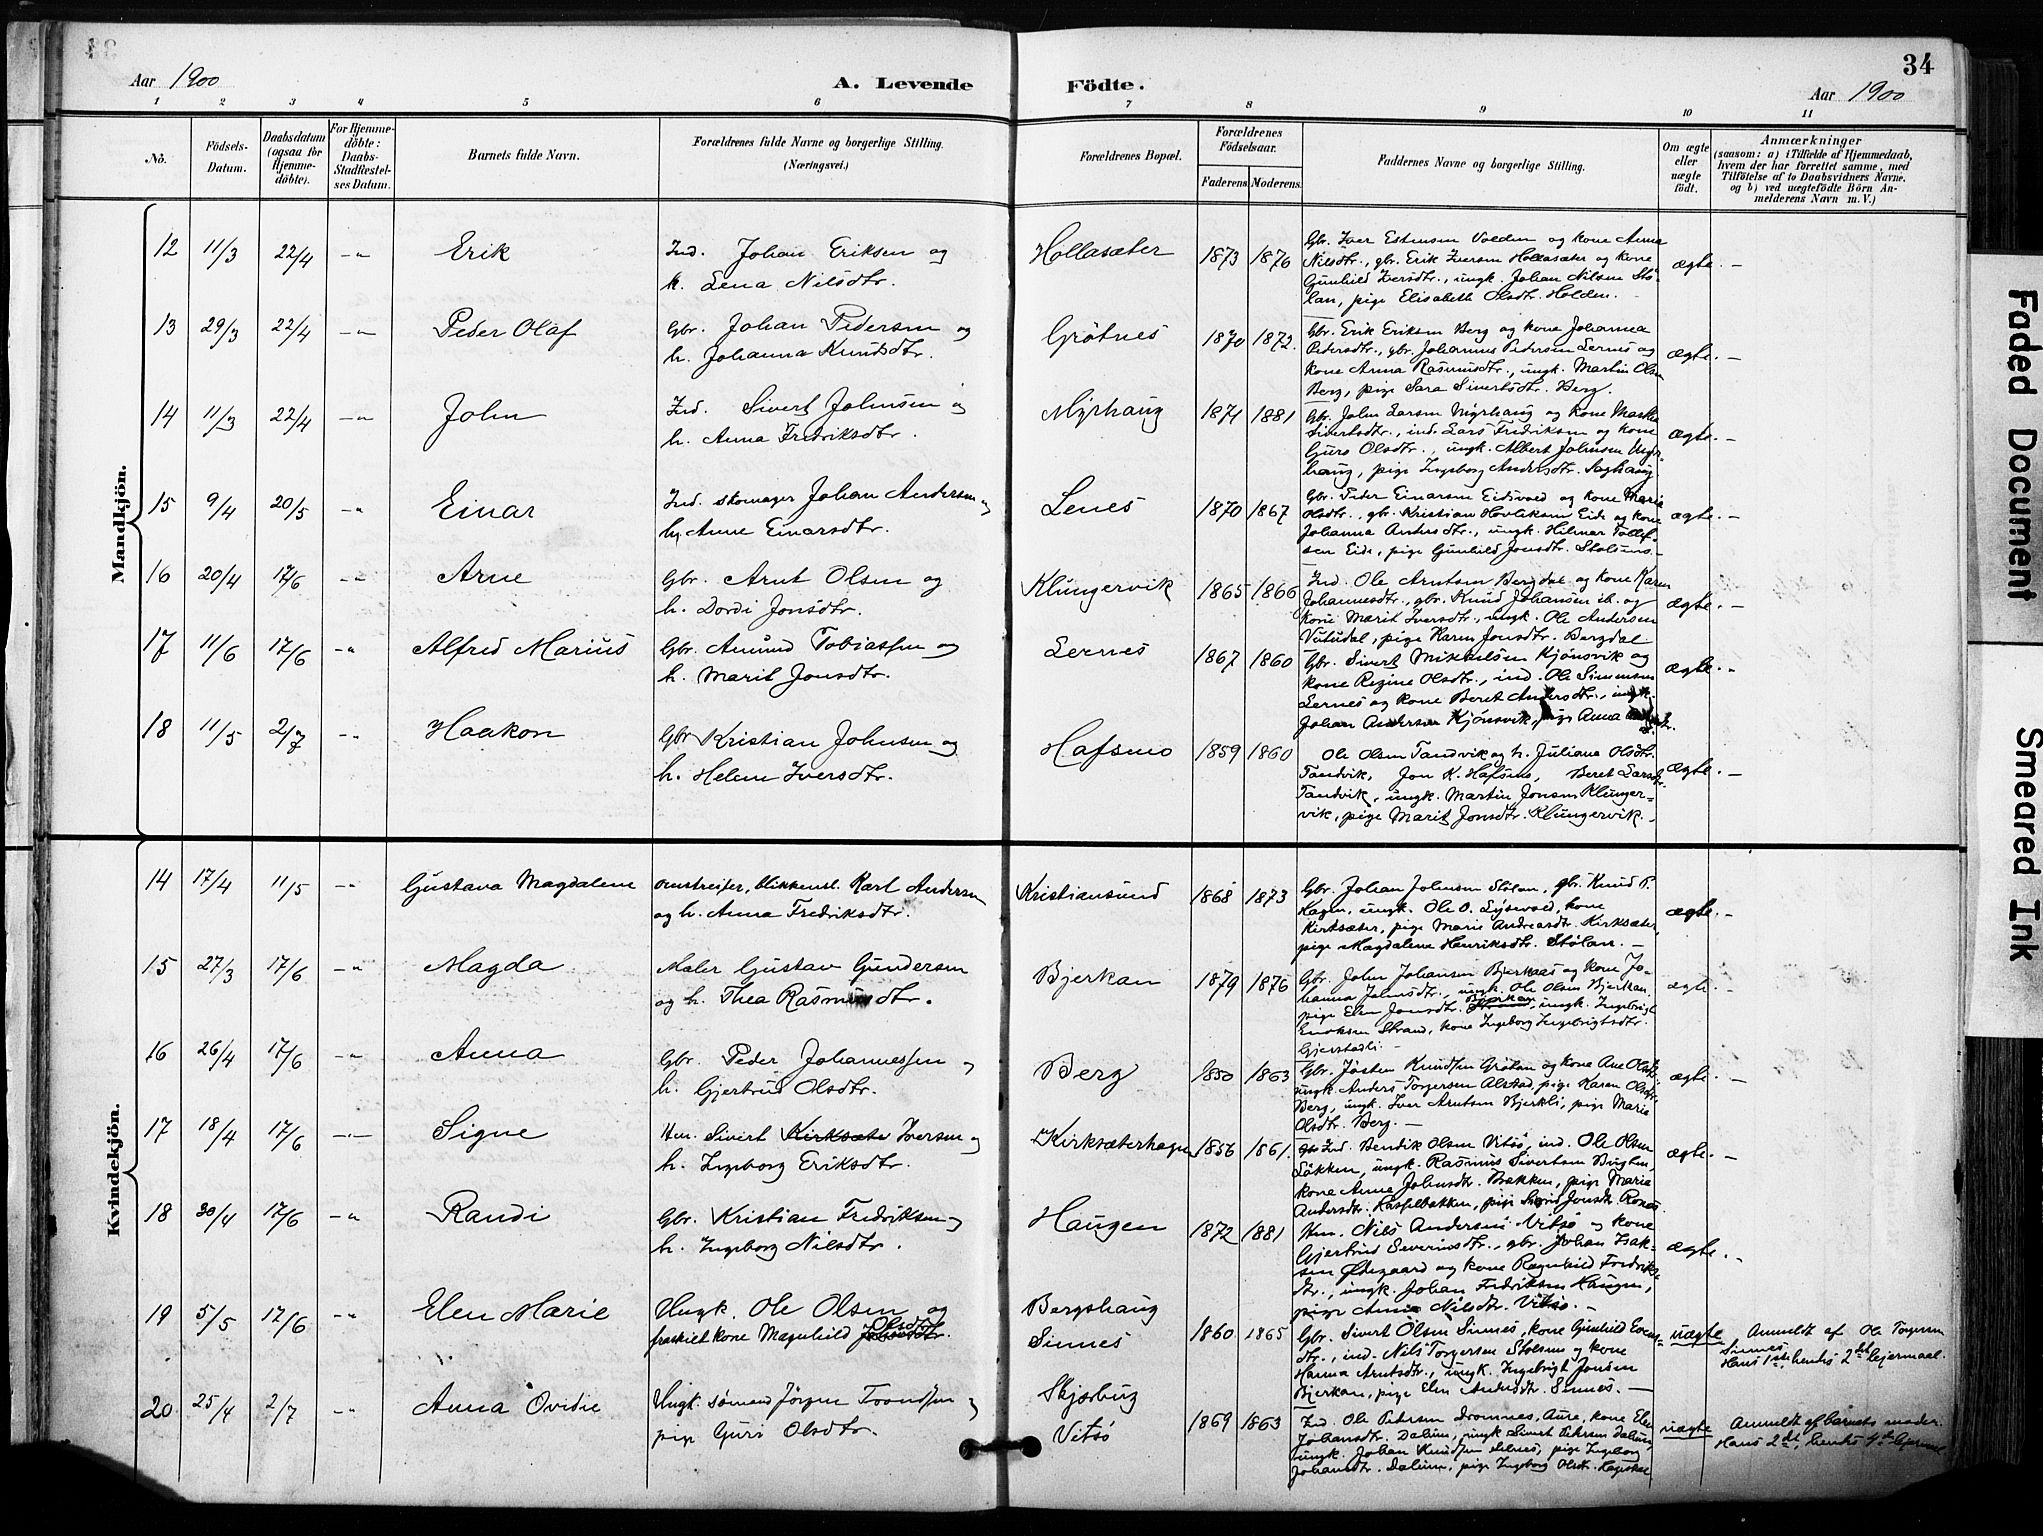 34
Aar 1900
A. Levende Födte.
Aar 1900
1 2 3 4 5 6 7 8 9 10 11
No.
Födsels-
Datum.
Daabsdatum
(ogsaa for
Hjemme-
döbte).
For Hjemme-
döbte:
Daabs-
Stadfæstel-
ses Datum.
Barnets fulde Navn.
Forældrenes fulde Navne og borgerlige Stilling.
(Næringsvei.)
Forældrenes Bopæl.
Forældrenes
Födselsaar.
Faderens Moderens.
Faddernes Navne og borgerlige Stilling.
Om ægte
eller
uægte
födt.
Anmærkninger
(saasom: a) i Tilfælde af Hjemmedaab,
hvem der har forrettet samme, med
Tilföielse af to Daabsvidners Navne,
og b) ved uægtefödte Börn An-
melderens Navn m. V.)
Mandkjön.
12 11/3 22/4 -"- Erik
Ind. Johan Eriksen og
k. Lena Nilsdtr.
Hollasæter 1873 1876
Gbr. Iver Estensen Volden og kone Anna
Nilsdtr., gbr. Erik Iversen Hollasæter og kone
Gunhild Iversdtr., ungk. Johan Nilsen Stö-
lan, pige Elisabeth Olsdtr. Holden.
ægte. -
13 29/3 22/4 -"- Peder Olaf
Gbr. Johan Pedersen og
h. Johanna Knutsdtr.
Grötnes 1870 1872.
Gbr. Erik Eriksen Berg og kone Johanna
Pedersdtr., gbr. Johannes Pedersen Lernes og
kone Anna Rasmusdtr., ungk. Martin Olsen
Berg, pige Sara Sivertsdtr. Berg.
ægte. -
14 11/3 22/4 -"- John
Ind. Sivert Johnsen og
h. Anna Fredriksdtr.
Myrhaug 1871 1881
Gbr. John Larsen Myrhaug og kone
Sivertsdtr., ind. Lars Fredriksen og kone
Guro Olsdtr., ungk. Albert Johnsen Myr-
haug, pige Ingeborg Andersdtr. Saghaug.
ægte. -
15 9/4 20/5 -"- Einar
Ind. skomager Johan Andersen og
h. Anne Einarsdtr.
Lenes 1870 1867
Gbr. Peder Einarsen Eidsvold og kone Marie
Olsdtr., gbr. Kristian Eide og kone
Johanna Andersdtr., ungk. Hilmar Tollef-
sen Eide, pige Gunhild Jonsdtr.
ægte. -
16 20/4 17/6 -"- Arne
Gbr. Arnt Olsen og
h. Dordi Jonsdtr.
Klungervik 1865 1866
Ind. Ole Arntsen Bergdal og kone Karen
Johannesdtr., gbr. Knud Johansen ib. og
kone Marit Iversdtr., ungk. Ole Andersen
Vutudal, pige Karen Jonsdtr. Bergdal.
ægte. -
17 11/6 17/6 -"- Alfred Marius
Gbr. Amund Tobiassen og
h. Marit Jonsdtr.
Lernes 1867 1860
Gbr. Sivert Mikkelsen Kjönsvik og
kone Regine Olsdtr., ind. Ole Simonsen
Lernes og kone Beret Andersdtr., ungk.
Johan Andersen Kjönsvik, pige Anna
ægte. -
18 11/5 2/7 -"- Haakon
Gbr. Kristian Johnsen og
h. Helene Iversdtr.
Hafsmo 1859 1860
Ole Olsen Tandvik og h. Juliane Olsdtr.
Tandvik, Jon K. Hafsmo, Beret Larsdtr.
Tandvik, ungk. Martin Jonsen Klunger-
vik, pige Marit Jonsdtr. Klungervik. -
ægte. -
Kvindekjön.
14 17/4 11/5 -"- Gustava Magdalene
omstreifer, blikkensl. Karl Andersen
og h. Anna Fredriksdtr.
Kristiansund 1868 1873
Gbr. Johan Johnsen Stölan, gbr. Knud P.
Hagen, ungk. Ole O. Lysevold, kone
Kirksæter, pige Marie Andreasdtr. Kirksæter,
pige Magdalene Henriksdtr. Stölan. -
ægte. -
15 27/3 17/6 -"- Magda
Maler Gustav Gundersen
og h. Thea Rasmusdtr.
Bjerkan 1879 1876
Gbr. John Johansen Bjerkaas og kone Jo-
hanna Johnsdtr., ungk. Ole Olsen Bjerkan,
pige Elen Jonsdtr. Bjerkan, ungk. Ingebrigt
Enoksen Strand, kone Ingeborg Ingebrigtsdtr.
Gjerstadli. -
ægte. -
16 26/4 17/6 -"- Anna
Gbr. Peder Johannessen og
h. Gjertrud Olsdtr.
Berg 1850 1863
Gbr. Jösten Knudsen Grötan og kone Ane Olsdtr.
ungk. Anders Torgersen Alstad, pige Karen Olsdtr.
Berg, ungk. Iver Arntsen Bjerkli, pige Marie
Olsdtr. Berg. -
ægte. -
17 18/4 17/6 -"- Signe
Hm. Sivert Kirksæter Iversen og
h. Ingeborg Eriksdtr.
Kirksæterhagen 1856 1861.
Ind. Bendik Olsen Vitsö, ind. Ole Olsen
Lökken, ungk. Rasmus Sivertsen Bugten,
kone Anne Johnsdtr. Brekken, pige Marie
Andersdtr. pige Sigrid Jonsdtr.
ægte. -
18 30/4 17/6 -"- Randi
Gbr. Kristian Fredriksen og
h. Ingeborg Nilsdtr.
Haugen 1872 1881
Hm. Nils Andersen Vitsö og kone
Gjertrud Severinsdtr., gbr. Johan Isak-
sen Ödegaard og kone Ragnhild Fredriks-
dtr., ungk. Johan Fredriksen Haugen,
pige Anne Nilsdtr. Vitsö. -
ægte. -
19 5/5 17/6 -"- Elen Marie
Ungk. Ole Olsen og
fraskilt kone Magnhild Olsdtr.
Bergshaug
Sinnes 1860 1865
Gbr. Sivert Olsen Sinnes, kone Gunhild
dtr., ind. Nils Torgersen Stolsnes og kone
Hanna Arntsdtr., ungk. Ingebrigt Jonsen
Bjerkan, pige Elen Andersdtr. Sinnes. -
uægte
Anmeldt af Ole Torgersen
Sinnes.
Hans 1ste, hendes 2det leiermaal.
20 25/4 2/7 -"- Anna Ovidie
Ungk. sömand Jörgen Trondsen og
pige Guro Olsdtr.
Skjærbug
Vitsö 1869 1863
Ind. Ole Petersen Dromnes, Aure, kone Elen
Johansdtr. Dalum, ungk Sivert Petersen Dalum,
ungk. Johan Knudsen Selnes, pige Ingeborg
Johansdtr. Dalum, pige Ingeborg Olsdtr.
uægte
Anmeldt af barnets moder.
Hans 2det, hendes 4de leiermaal
Faded Document
Smeared Ink